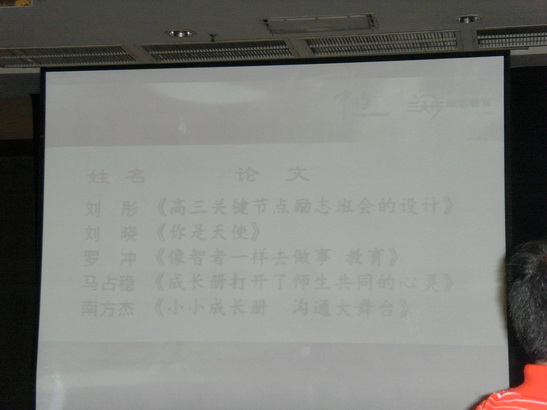 姓 名 论 文
刘 彤 《高三关键节点励志班会的设计》
刘 晓 《你是天使》
罗 冲 《像智者一样去做事 教育》
马占稳 《成长册打开了师生共同的心灵》
南方杰 《小小成长册 沟通大舞台》